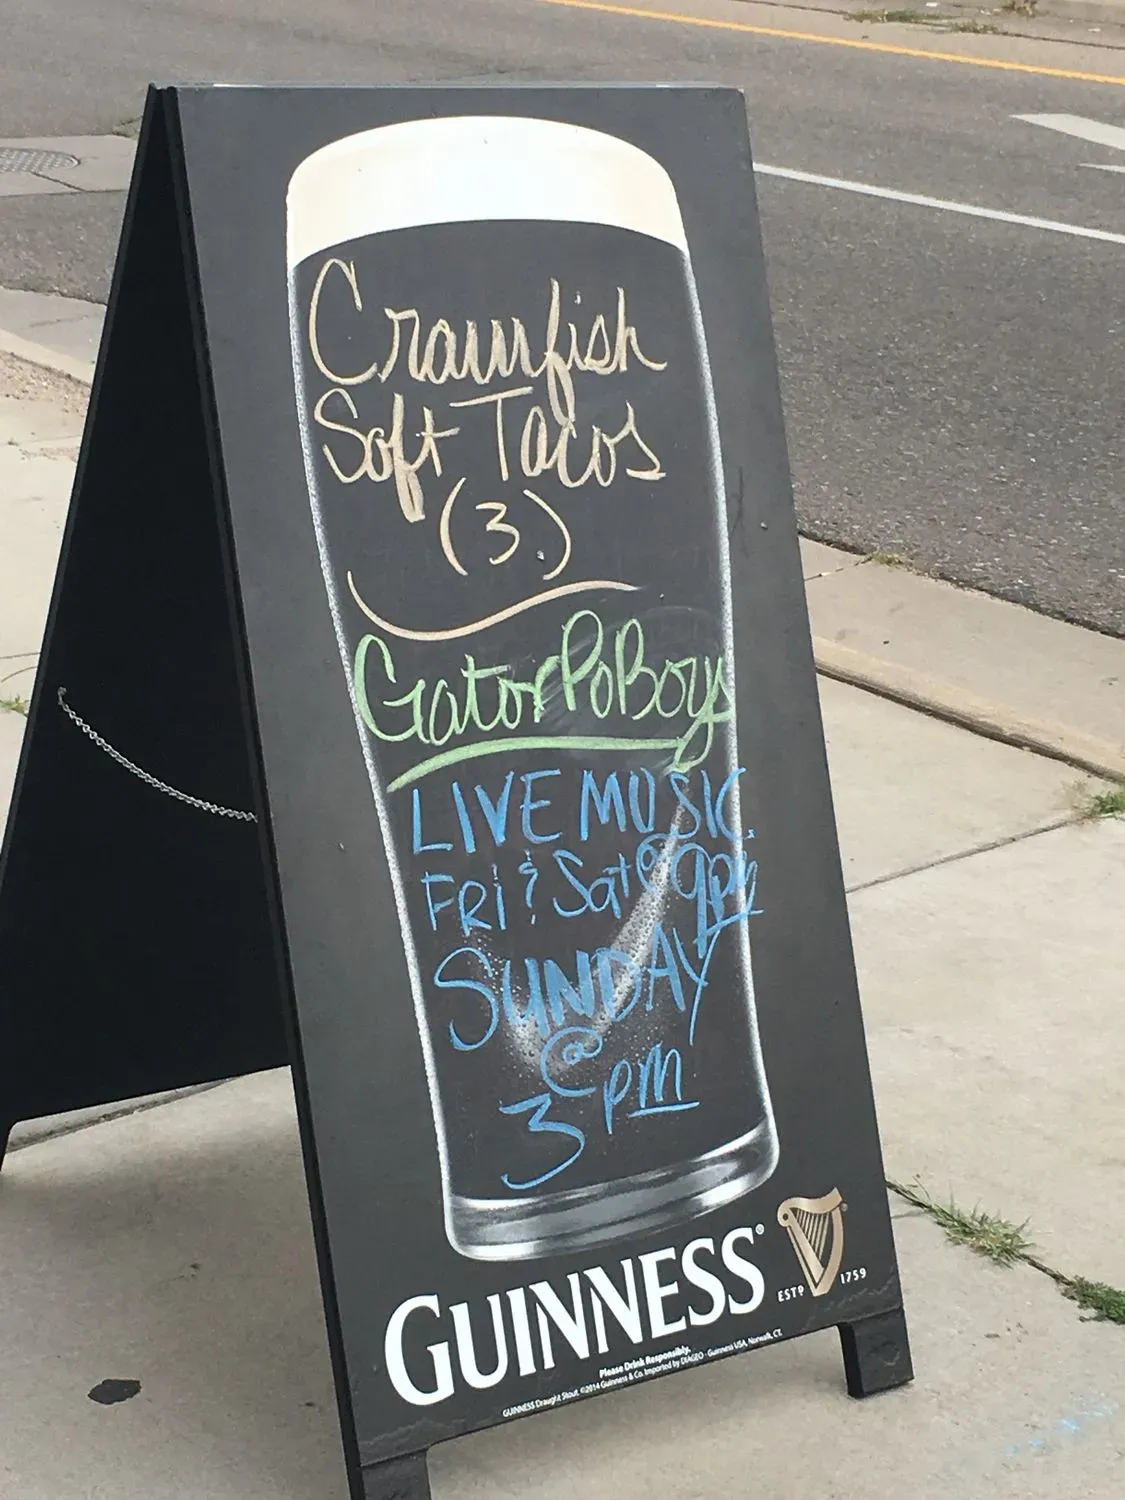 Crawfish
Soft Tacos
(3.)
Gator PoBoys
LIVE MUSIC
FRi & Sat @ 9pm
SUNDAY
@
3 pm
GUINNESS®
ESTD 1759
Please Drink Responsibly.
GUINNESS Draught Stout. ©2014 Guinness & Co. Imported by DIAGEO - Guinness USA, Norwalk, CT.